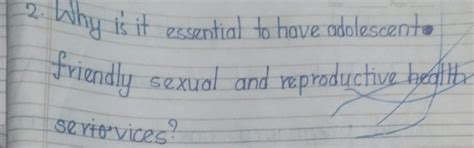 2. Why is it essential to have adolescent
friendly sexual and reproductive health
services?